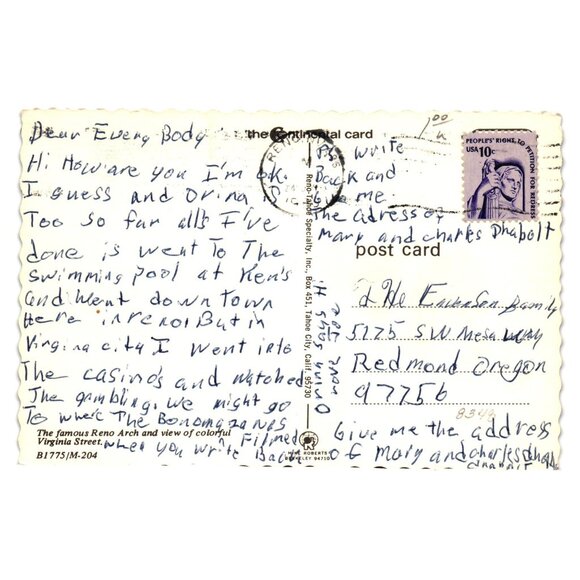 the Continental card
Dear Every Body
Hi How are you I'm ok.
I guess and Orina
Too so far alls I've
done is went To The
Swimming pool at Ken's
and Went down Town
Here in renoi But in
Virgina city I went into
The casino's and watched
The gambling. we might go
To where The Bonomaganas
Filmed
when you write Back
The famous Reno Arch and view of colorful
Virginia Street.
B1775/M-204
Reno-Tahoe Specialty, Inc., Box 451, Tahoe City, Calif. 95730
MIKE ROBERTS
BERKELEY 94710
Orina says Hi
RENO
1.00
write
Back and
give me
The adress of
Mary and charles Phabolt
PEOPLE'S RIGHT TO PETITION FOR REDRESS
USA 10c
post card
Family
5175 SW Mesa Way
Redmond Oregon
97756
834
Give me the address
of Mary and charles